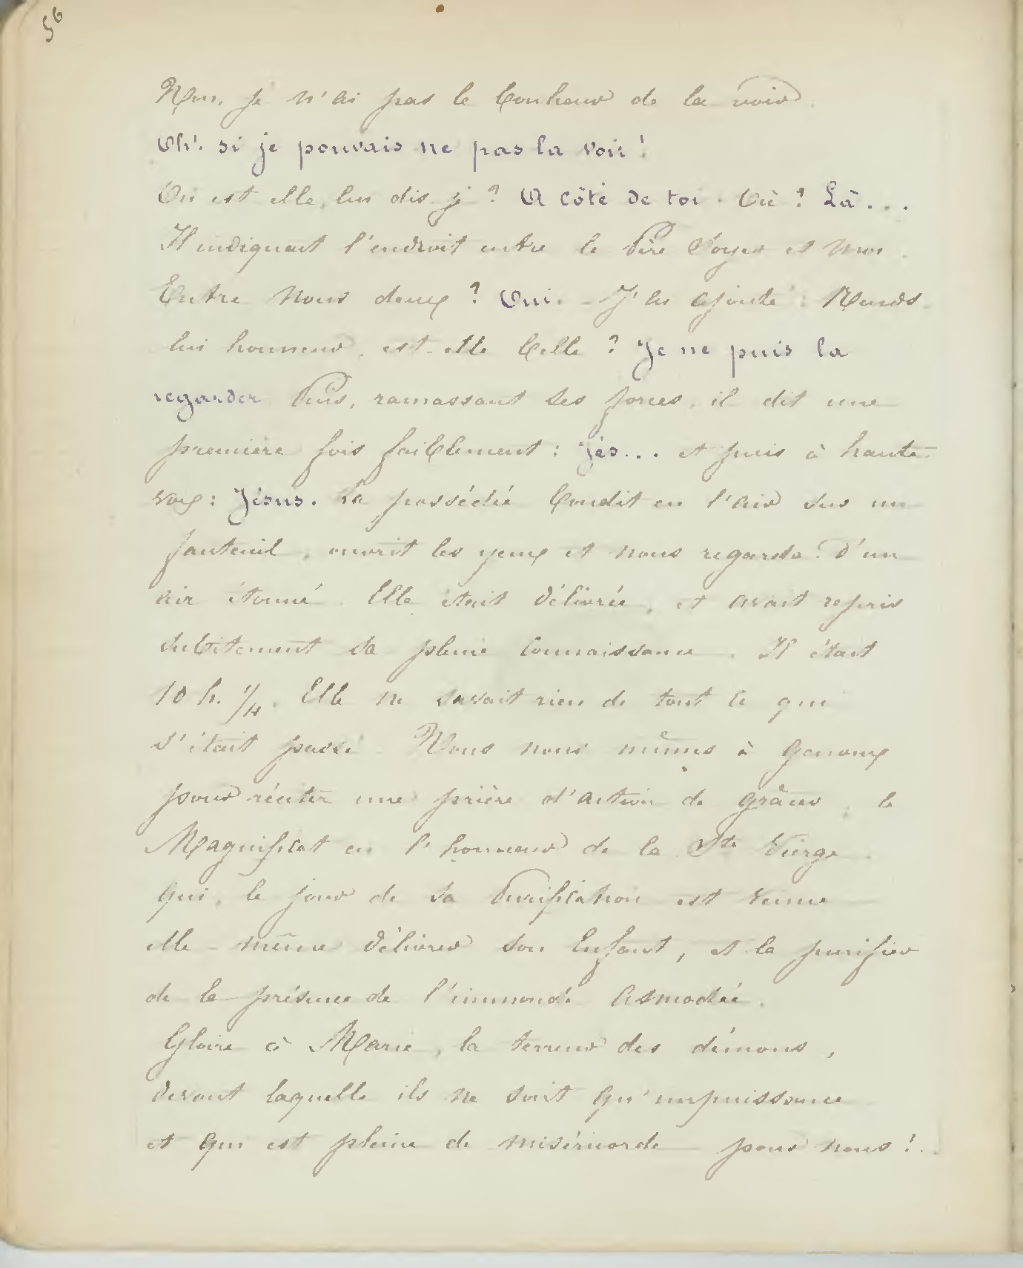 56
Non, je n'ai pas le bonheur de la voir.
Oh! si je pouvais ne pas la voir!
Où est elle, lui dis-je? A côté de toi. Où? Là...
Il indiquait l'endroit entre le Père et moi.
Entre nous deux? Oui. - J'ai ajouté: Rends-
lui honneur, est-elle belle? Je ne puis la
regarder. Puis, ramassant ses forces, il dit une
première fois faiblement: Jés... et puis à haute
voix: Jésus. La possédée bondit en l'air sur un
fauteuil, ouvrit les yeux et nous regarda d'un
air étonné. Elle était délivrée, et avait repris
subitement sa pleine connaissance. Il était
10 h. 1/4. Elle ne savait rien de tout ce qui
s'était passé. Nous nous mîmes à genoux
pour réciter une prière d'action de grâces, le
Magnificat en l'honneur de la Ste Vierge
qui, le jour de sa Purification est venue
elle-même délivrer son Enfant, et la purifier
de la présence de l'immonde Asmodée.
Gloire à Marie, la terreur des démons,
devant laquelle ils ne sont qu'impuissance
et qui est pleine de miséricorde pour nous!..